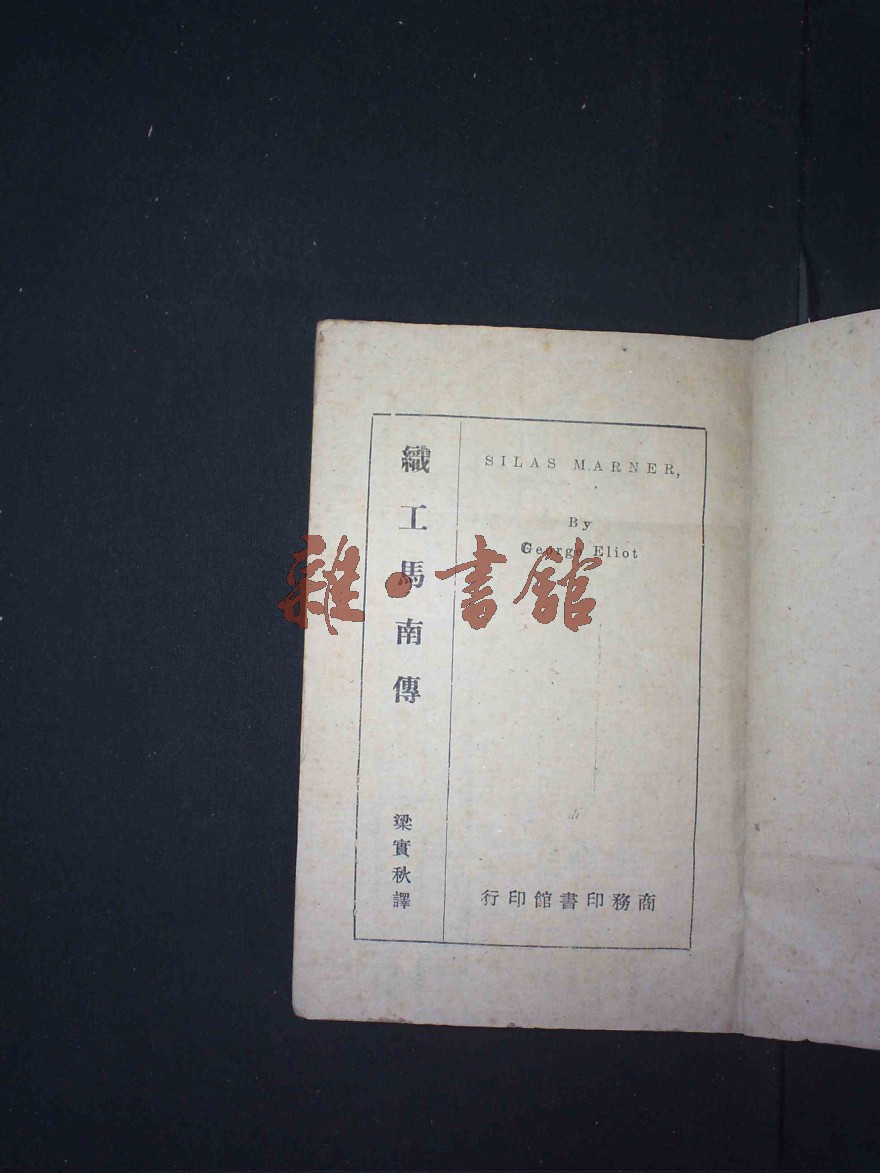 織工馬南傳
梁實秋譯
SILAS MARNER,
By
George Eliot
商務印書館印行
雜·書館